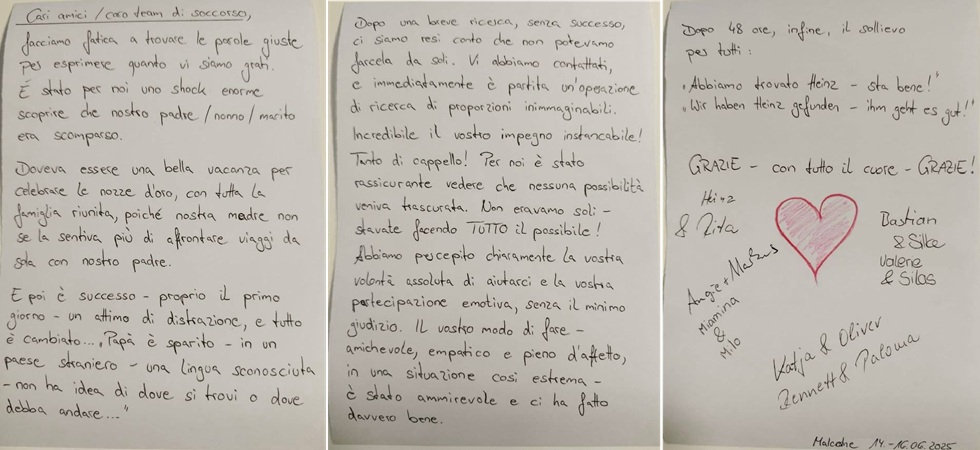 Cari amici / caro team di soccorso,
facciamo fatica a trovare le parole giuste
per esprimere quanto vi siamo grati.
È stato per noi uno shock enorme
scoprire che nostro padre / nonno / marito
era scomparso.
Doveva essere una bella vacanza per
celebrare le nozze d'oro, con tutta la
famiglia riunita, poiché nostra madre non
se la sentiva più di affrontare viaggi da
sola con nostro padre.
E poi è successo - proprio il primo
giorno - un attimo di distrazione, e tutto
è cambiato... „Papà è sparito - in un
paese straniero - una lingua sconosciuta
- non ha idea di dove si trovi o dove
debba andare..."
Dopo una breve ricerca, senza successo,
ci siamo resi conto che non potevamo
farcela da soli. Vi abbiamo contattati,
e immediatamente è partita un'operazione
di ricerca di proporzioni inimmaginabili.
Incredibile il vostro impegno instancabile!
Tanto di cappello! Per noi è stato
rassicurante vedere che nessuna possibilità
veniva trascurata. Non eravamo soli -
stavate facendo TUTTO il possibile!
Abbiamo percepito chiaramente la vostra
volontà assoluta di aiutarci e la vostra
partecipazione emotiva, senza il minimo
giudizio. Il vostro modo di fare -
amichevole, empatico e pieno d'affetto,
in una situazione così estrema -
è stato ammirevole e ci ha fatto
davvero bene.
Dopo 48 ore, infine, il sollievo
per tutti:
„Abbiamo trovato Heinz - sta bene!"
„Wir haben Heinz gefunden - ihm geht es gut!"
GRAZIE - con tutto il cuore - GRAZIE!
Heinz
& Rita
Bastian
& Silke
Valerie
& Silas
Angie + Markus
Miamina
&
Milo
Katja & Oliver
Bennett & Paloma
Malcesine 14.-16.06.2025